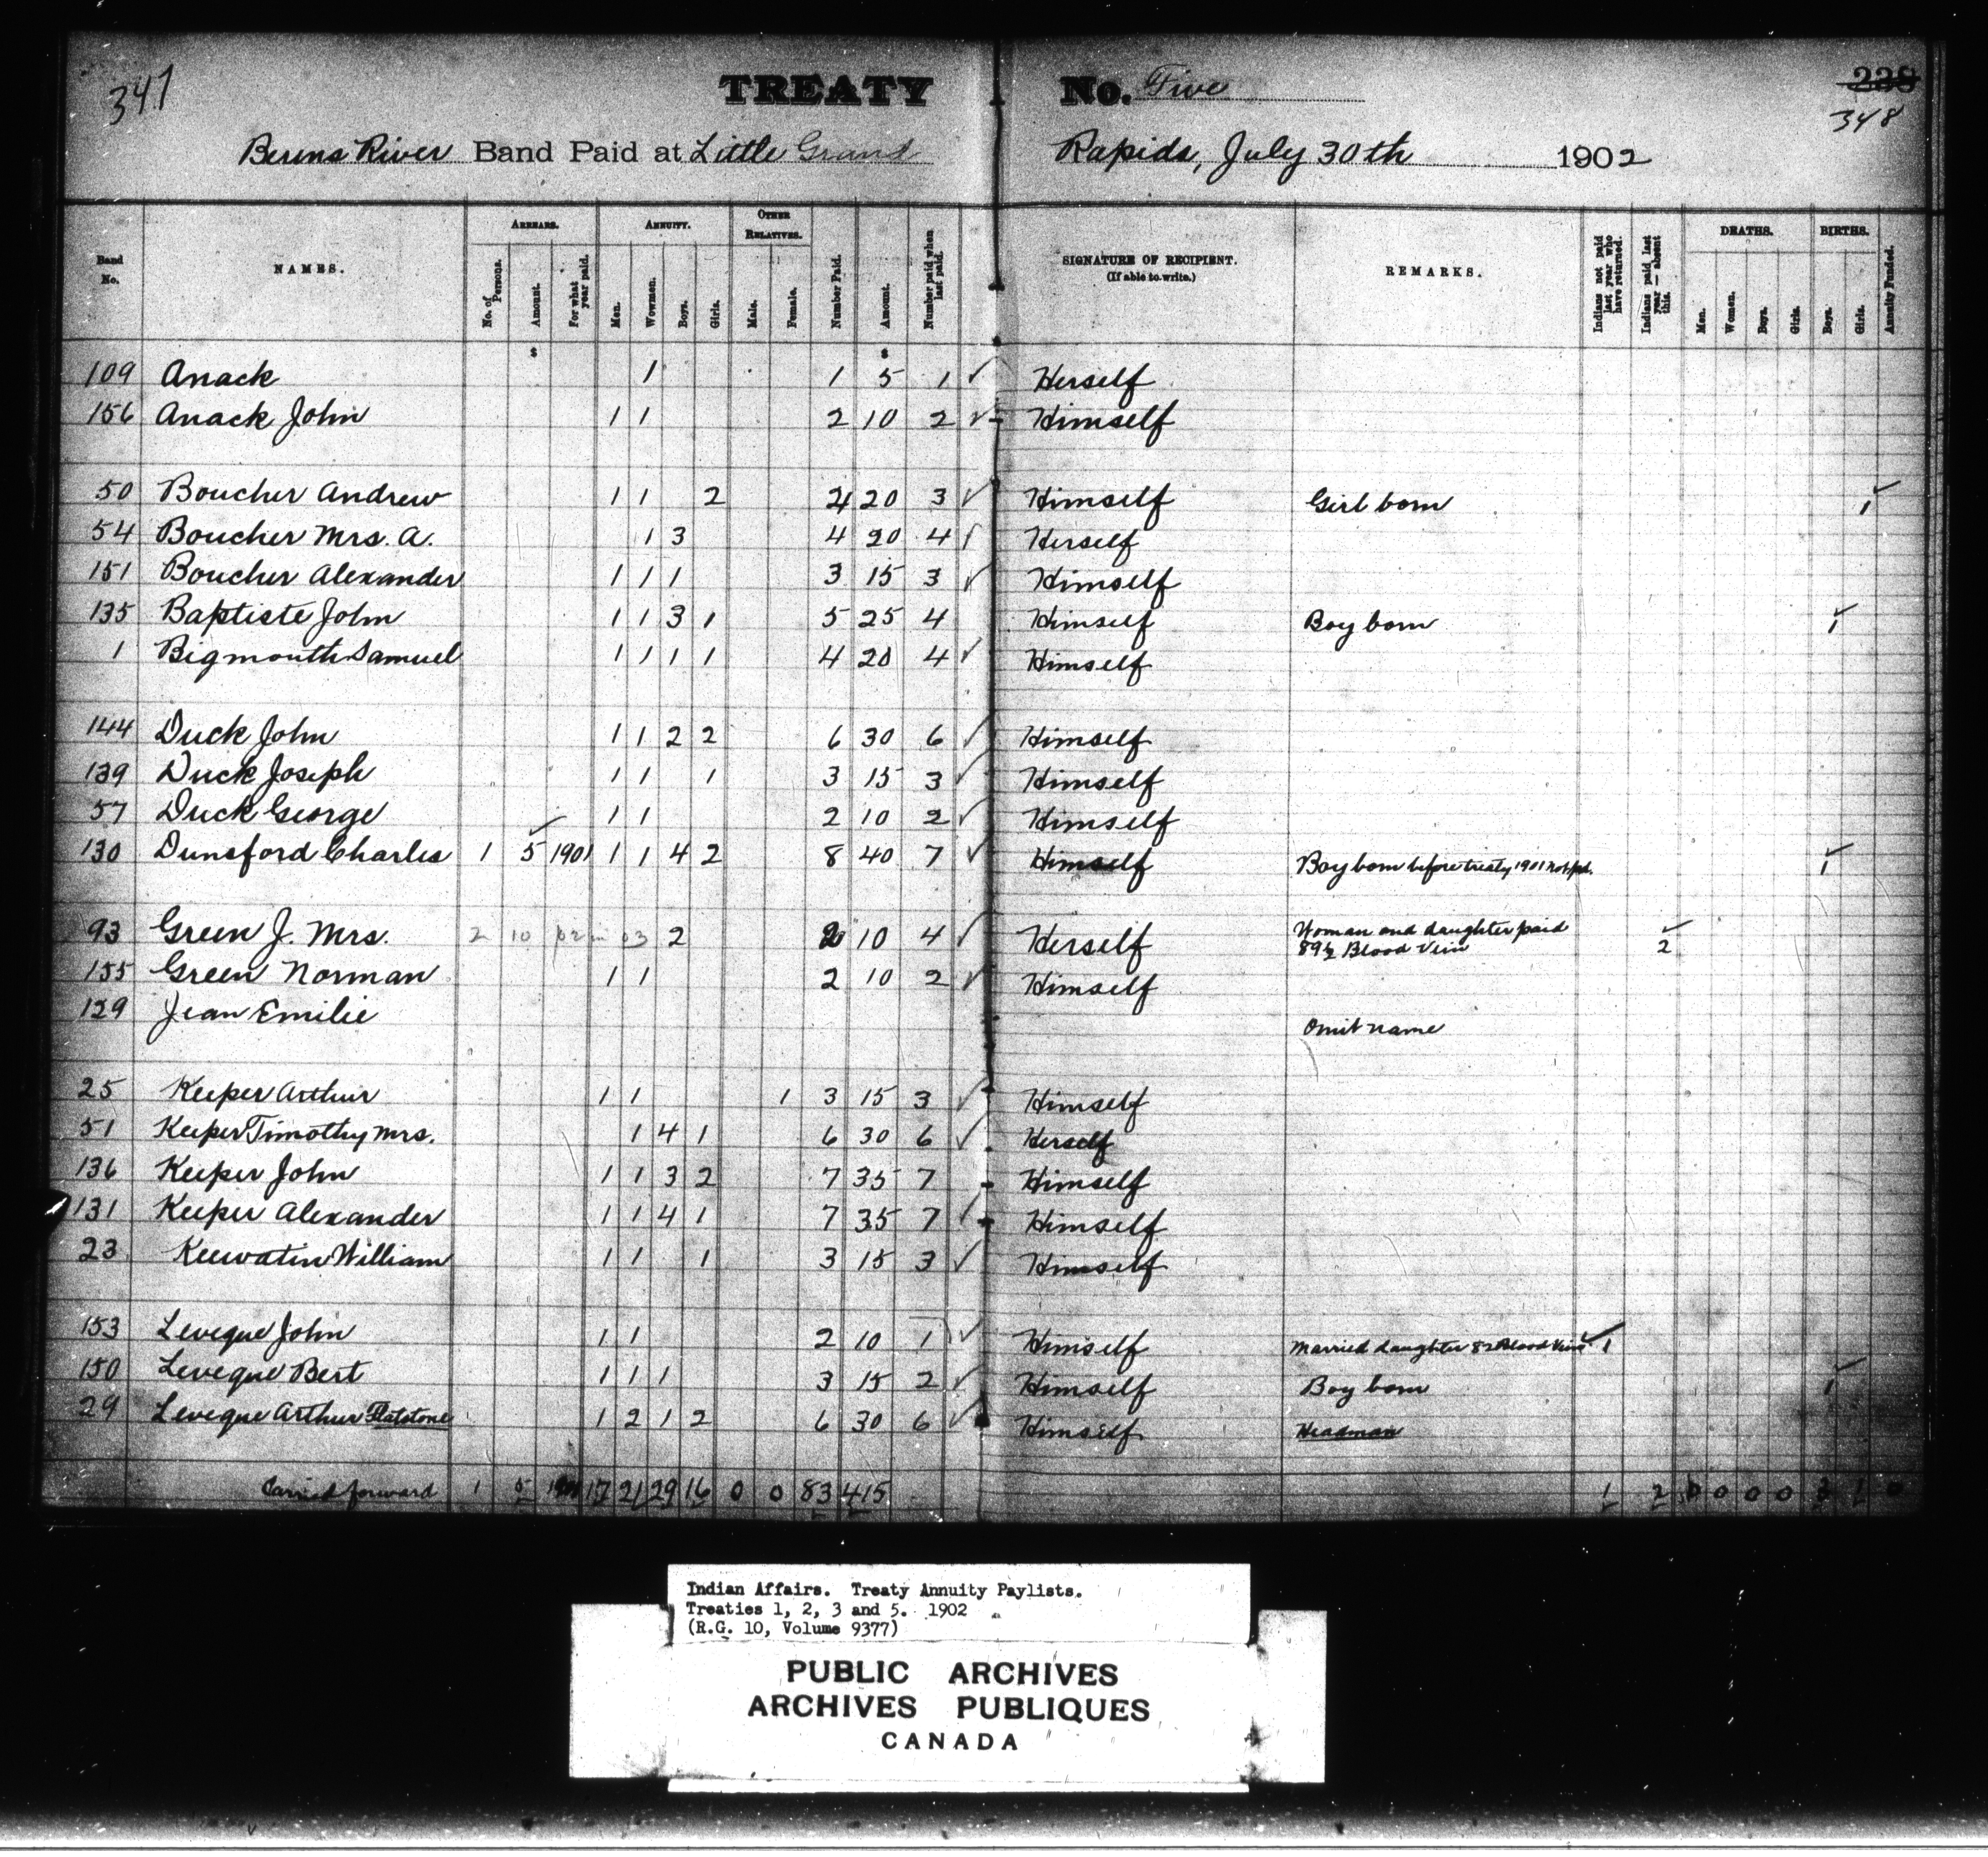 347
TREATY No. Five
238
348
Berens River Band Paid at Little Grand Rapids, July 30th 1902
Band No. NAMES. ARREARS. No. of Persons. Amount. For what year paid. ANNUITY. Men. Women. Boys. Girls. OTHER RELATIVES. Male. Female. Number Paid. Amount. Number paid when last paid. SIGNATURE OF RECIPIENT. (If able to write.) REMARKS. Indians not paid last year who have returned. Indians paid last year — absent this. DEATHS. Men. Women. Boys. Girls. BIRTHS. Boys. Girls. Annuity Funded.
$ $
109 Anack 1 1 5 1 ✓ Herself
156 Anack John 1 1 2 10 2 ✓ Himself
50 Boucher Andrew 1 1 2 4 20 3 ✓ Himself Girl born 1
54 Boucher Mrs. A. 1 3 4 20 4 ✓ Herself
151 Boucher Alexander 1 1 1 3 15 3 ✓ Himself
135 Baptiste John 1 1 3 1 5 25 4 Himself Boy born 1
1 Bigmouth Samuel 1 1 1 1 4 20 4 ✓ Himself
144 Duck John 1 1 2 2 6 30 6 ✓ Himself
139 Duck Joseph 1 1 1 3 15 3 ✓ Himself
57 Duck George 1 1 2 10 2 ✓ Himself
130 Dunsford Charles 1 5 1901 1 1 4 2 8 40 7 ✓ Himself Boy born before treaty 1901 not pd. 1
93 Green J. Mrs. 2 10 02 in 03 2 2 10 4 ✓ Herself Woman and daughter paid
89½ Blood Vein 2
155 Green Norman 1 1 2 10 2 ✓ Himself
129 Jean Emilie Omit name
25 Keeper Arthur 1 1 1 3 15 3 ✓ Himself
51 Keeper Timothy Mrs. 1 4 1 6 30 6 ✓ Herself
136 Keeper John 1 1 3 2 7 35 7 Himself
131 Keeper Alexander 1 1 4 1 7 35 7 ✓ Himself
23 Keewatin William 1 1 1 3 15 3 ✓ Himself
153 Leveque John 1 1 2 10 1 ✓ Himself Married daughter 82 Blood Vein 1
150 Leveque Bert 1 1 1 3 15 2 ✓ Himself Boy born 1
29 Leveque Arthur Flatstone 1 2 1 2 6 30 6 ✓ Himself Headman
Carried forward 1 5 1901 17 21 29 16 0 0 83 415 1 2 0 0 0 0 3 1 0
Indian Affairs. Treaty Annuity Paylists.
Treaties 1, 2, 3 and 5. 1902
(R.G. 10, Volume 9377)
PUBLIC ARCHIVES
ARCHIVES PUBLIQUES
CANADA